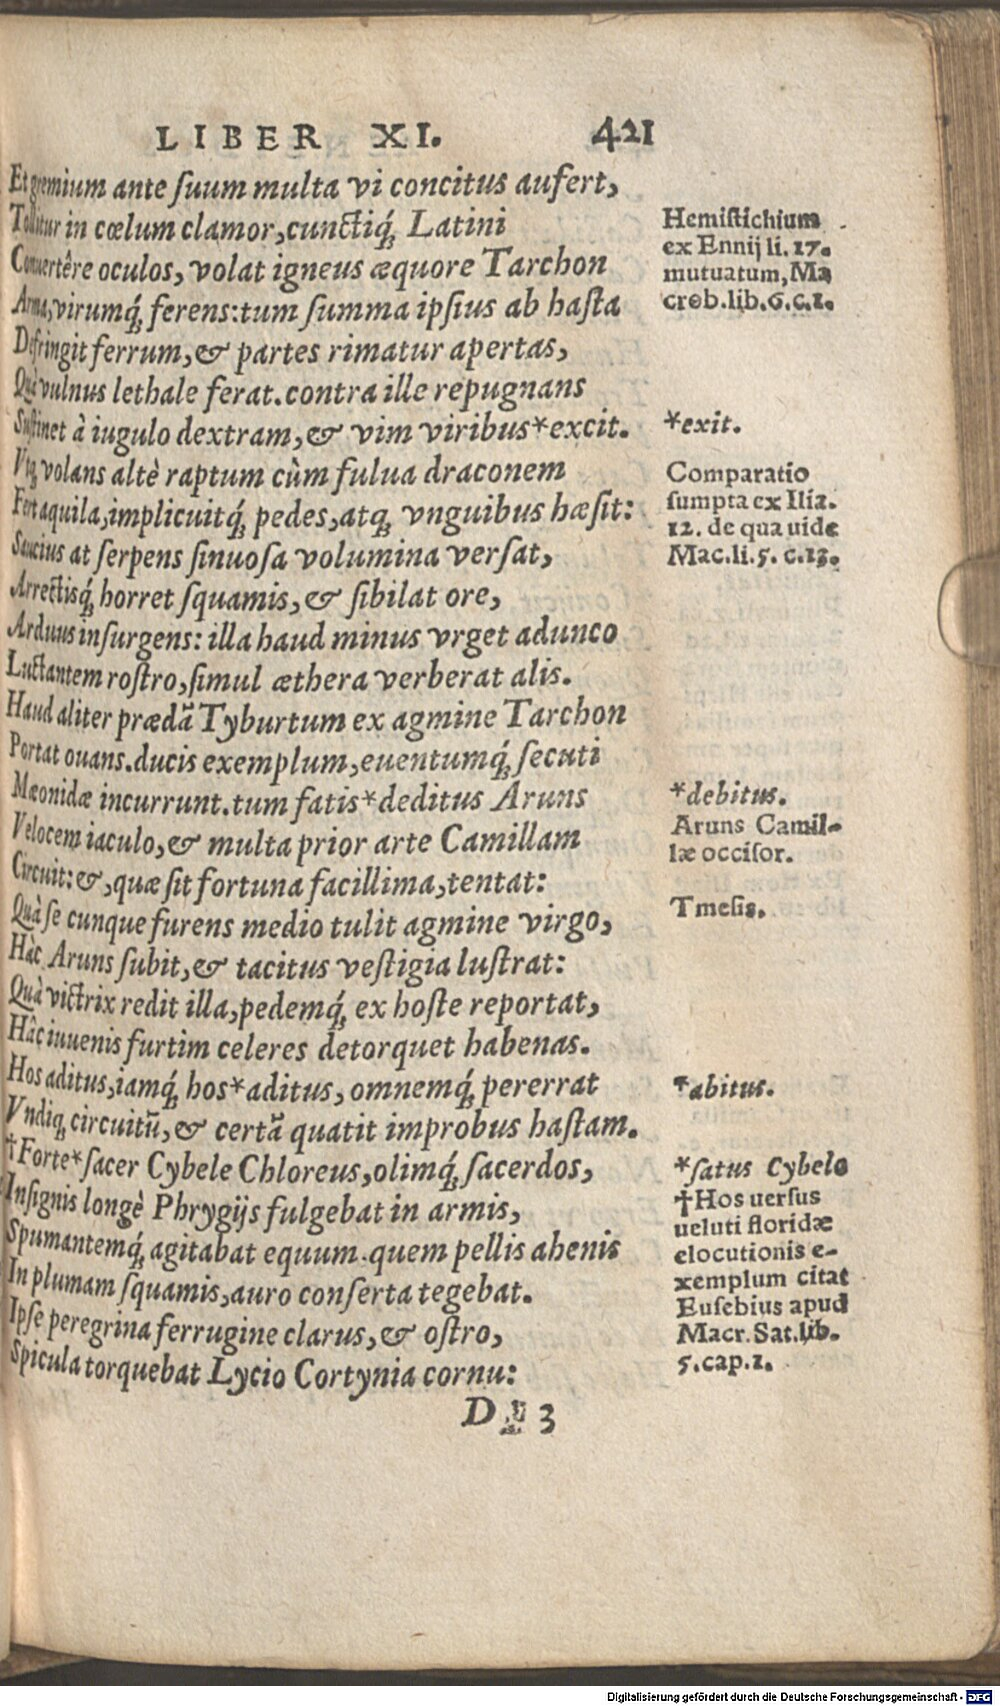 LIBER XI. 421
Et gremium ante ſuum multa vi concitus aufert,
Tollitur in cœlum clamor, cunctiq́; Latini
Conuertêre oculos, volat igneus æquore Tarchon
Arma, virumq́; ferens: tum ſumma ipſius ab haſta
Defringit ferrum, & partes rimatur apertas,
Quà vulnus lethale ferat. contra ille repugnans
Suſtinet à iugulo dextram, & vim viribus*excit.
Vtq; volans altè raptum cùm fulua draconem
Fert aquila, implicuitq́; pedes, atq; vnguibus hæſit:
Saucius at ſerpens ſinuoſa volumina verſat,
Arrectisq́; horret ſquamis, & ſibilat ore,
Arduus inſurgens: illa haud minus vrget adunco
Luctantem roſtro, ſimul æthera verberat alis.
Haud aliter prædã Tyburtum ex agmine Tarchon
Portat ouans. ducis exemplum, euentumq́; ſecuti
Mæonidæ incurrunt. tum fatis*deditus Aruns
Velocem iaculo, & multa prior arte Camillam
Circuit: &, quæ ſit fortuna facillima, tentat:
Quà ſe cunque furens medio tulit agmine virgo,
Hàc Aruns ſubit, & tacitus veſtigia luſtrat:
Quà victrix redit illa, pedemq́; ex hoſte reportat,
Hâc iuuenis furtim celeres detorquet habenas.
Hos aditus, iamq́; hos*aditus, omnemq́; pererrat
Vndiq; circuitũ, & certã quatit improbus haſtam.
†Forte*ſacer Cybele Chloreus, olimq́; ſacerdos,
Inſignis longè Phrygijs fulgebat in armis,
Spumantemq́; agitabat equum. quem pellis ahenis
In plumam ſquamis, auro conſerta tegebat.
Ipſe peregrina ferrugine clarus, & oſtro,
Spicula torquebat Lycio Cortynia cornu:
D 3
Hemiſtichium
ex Ennij li. 17.
mutuatum, Ma
crob. lib. 6. c. 1.
*exit.
Comparatio
ſumpta ex Ilia.
12. de qua uide
Mac. li. 5. c. 13.
*debitus.
Aruns Camil-
læ occiſor.
Tmeſis.
*abitus.
*ſatus Cybelo
†Hos uerſus
ueluti floridæ
elocutionis e-
xemplum citat
Euſebius apud
Macr. Sat. lib.
5. cap. 1.
Digitalisierung gefördert durch die Deutsche Forschungsgemeinschaft - DFG